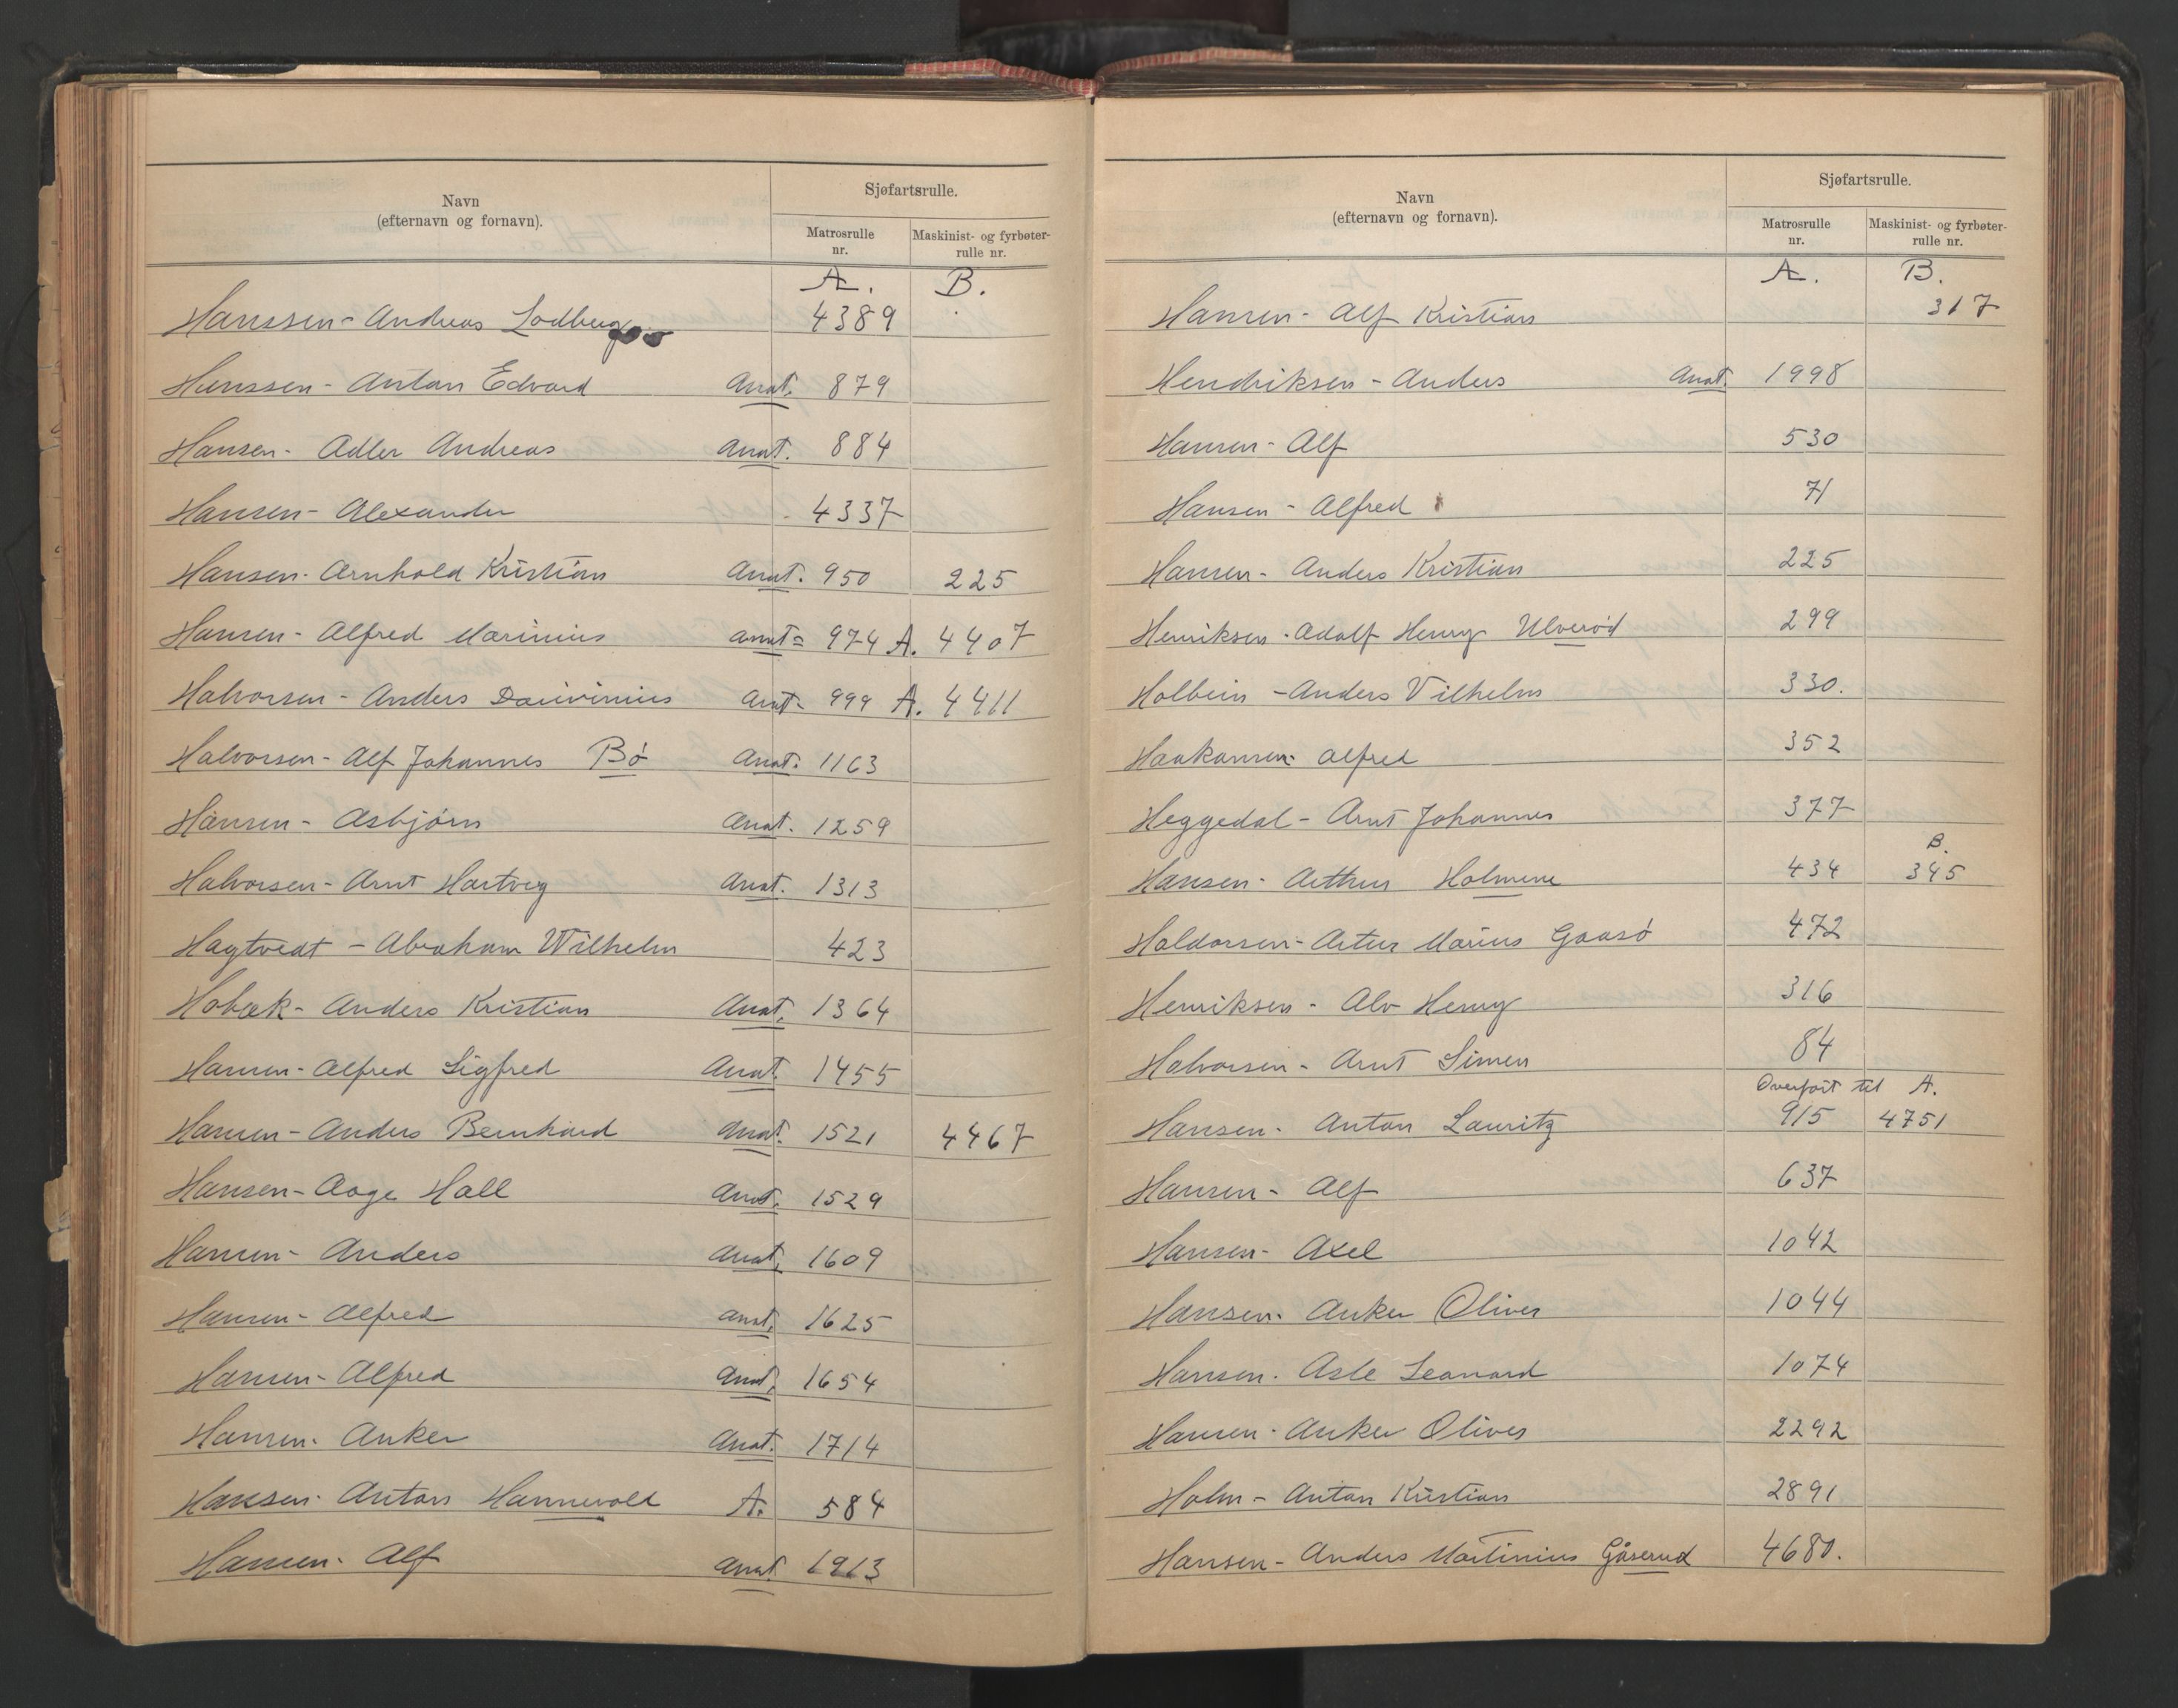 Navn
(efternavn og fornavn).
Sjøfartsrulle.
Matrosrulle
nr.
Maskinist- og fyrbøter-
rulle nr.
A. B.
Hanssen - Andreas Lodberg 4389
Hanssen - Anton Edvard Anat. 879
Hansen - Adler Andreas Anat. 884
Hansen - Alexander 4337
Hansen - Arnhold Kristian Anat. 950 225
Hansen - Alfred Marinius Anat. 974 A. 4407
Halvorsen - Anders Anat. 999 A. 4411
Halvorsen - Alf Johannes Bö Anat. 1163
Hansen - Asbjörn Anat. 1259
Halvorsen - Arnt Hartvig Anat. 1313
Hagtvedt - Abraham Wilhelm 423
Hobæk - Anders Kristian Anat. 1364
Hansen - Alfred Sigfred Anat. 1455
Hansen - Anders Bernhard Anat. 1521 4467
Hansen - Aage Hall Anat. 1529
Hansen - Anders Anat. 1609
Hansen - Alfred Anat. 1625
Hansen - Alfred Anat. 1654
Hansen - Anker Anat. 1714
Hansen - Anton Hannevold A. 584
Hansen - Alf Anat. 1913
Navn
(efternavn og fornavn).
Sjøfartsrulle.
Matrosrulle
nr.
Maskinist- og fyrbøter-
rulle nr.
A. B.
Hansen - Alf Kristian 317
Hendriksen - Anders Anat. 1998
Hansen - Alf 530
Hansen - Alfred 71
Hansen - Anders Kristian 225
Henriksen - Adolf Henry Ulveröd 299
Holbein - Anders Vilhelm 330.
Haakonsen - Alfred 352
Heggedal - Arnt Johannes 377
B.
Hansen - Arthur Holmene 434 345
Haldorsen - Artur Marius Gaasö 472
Henriksen - Alv Henry 316
Halvorsen - Arnt Simen 84
Overfört til A.
Hansen - Anton Lauritz 915 4751
Hansen - Alf 637
Hansen - Axel 1042
Hansen - Anker Oliver 1044
Hansen - Asle Leonard 1074
Hansen - Anker Oliver 2292
Holm - Anton Kristian 2891
Hansen - Anders Martinius Gåserud 4680.